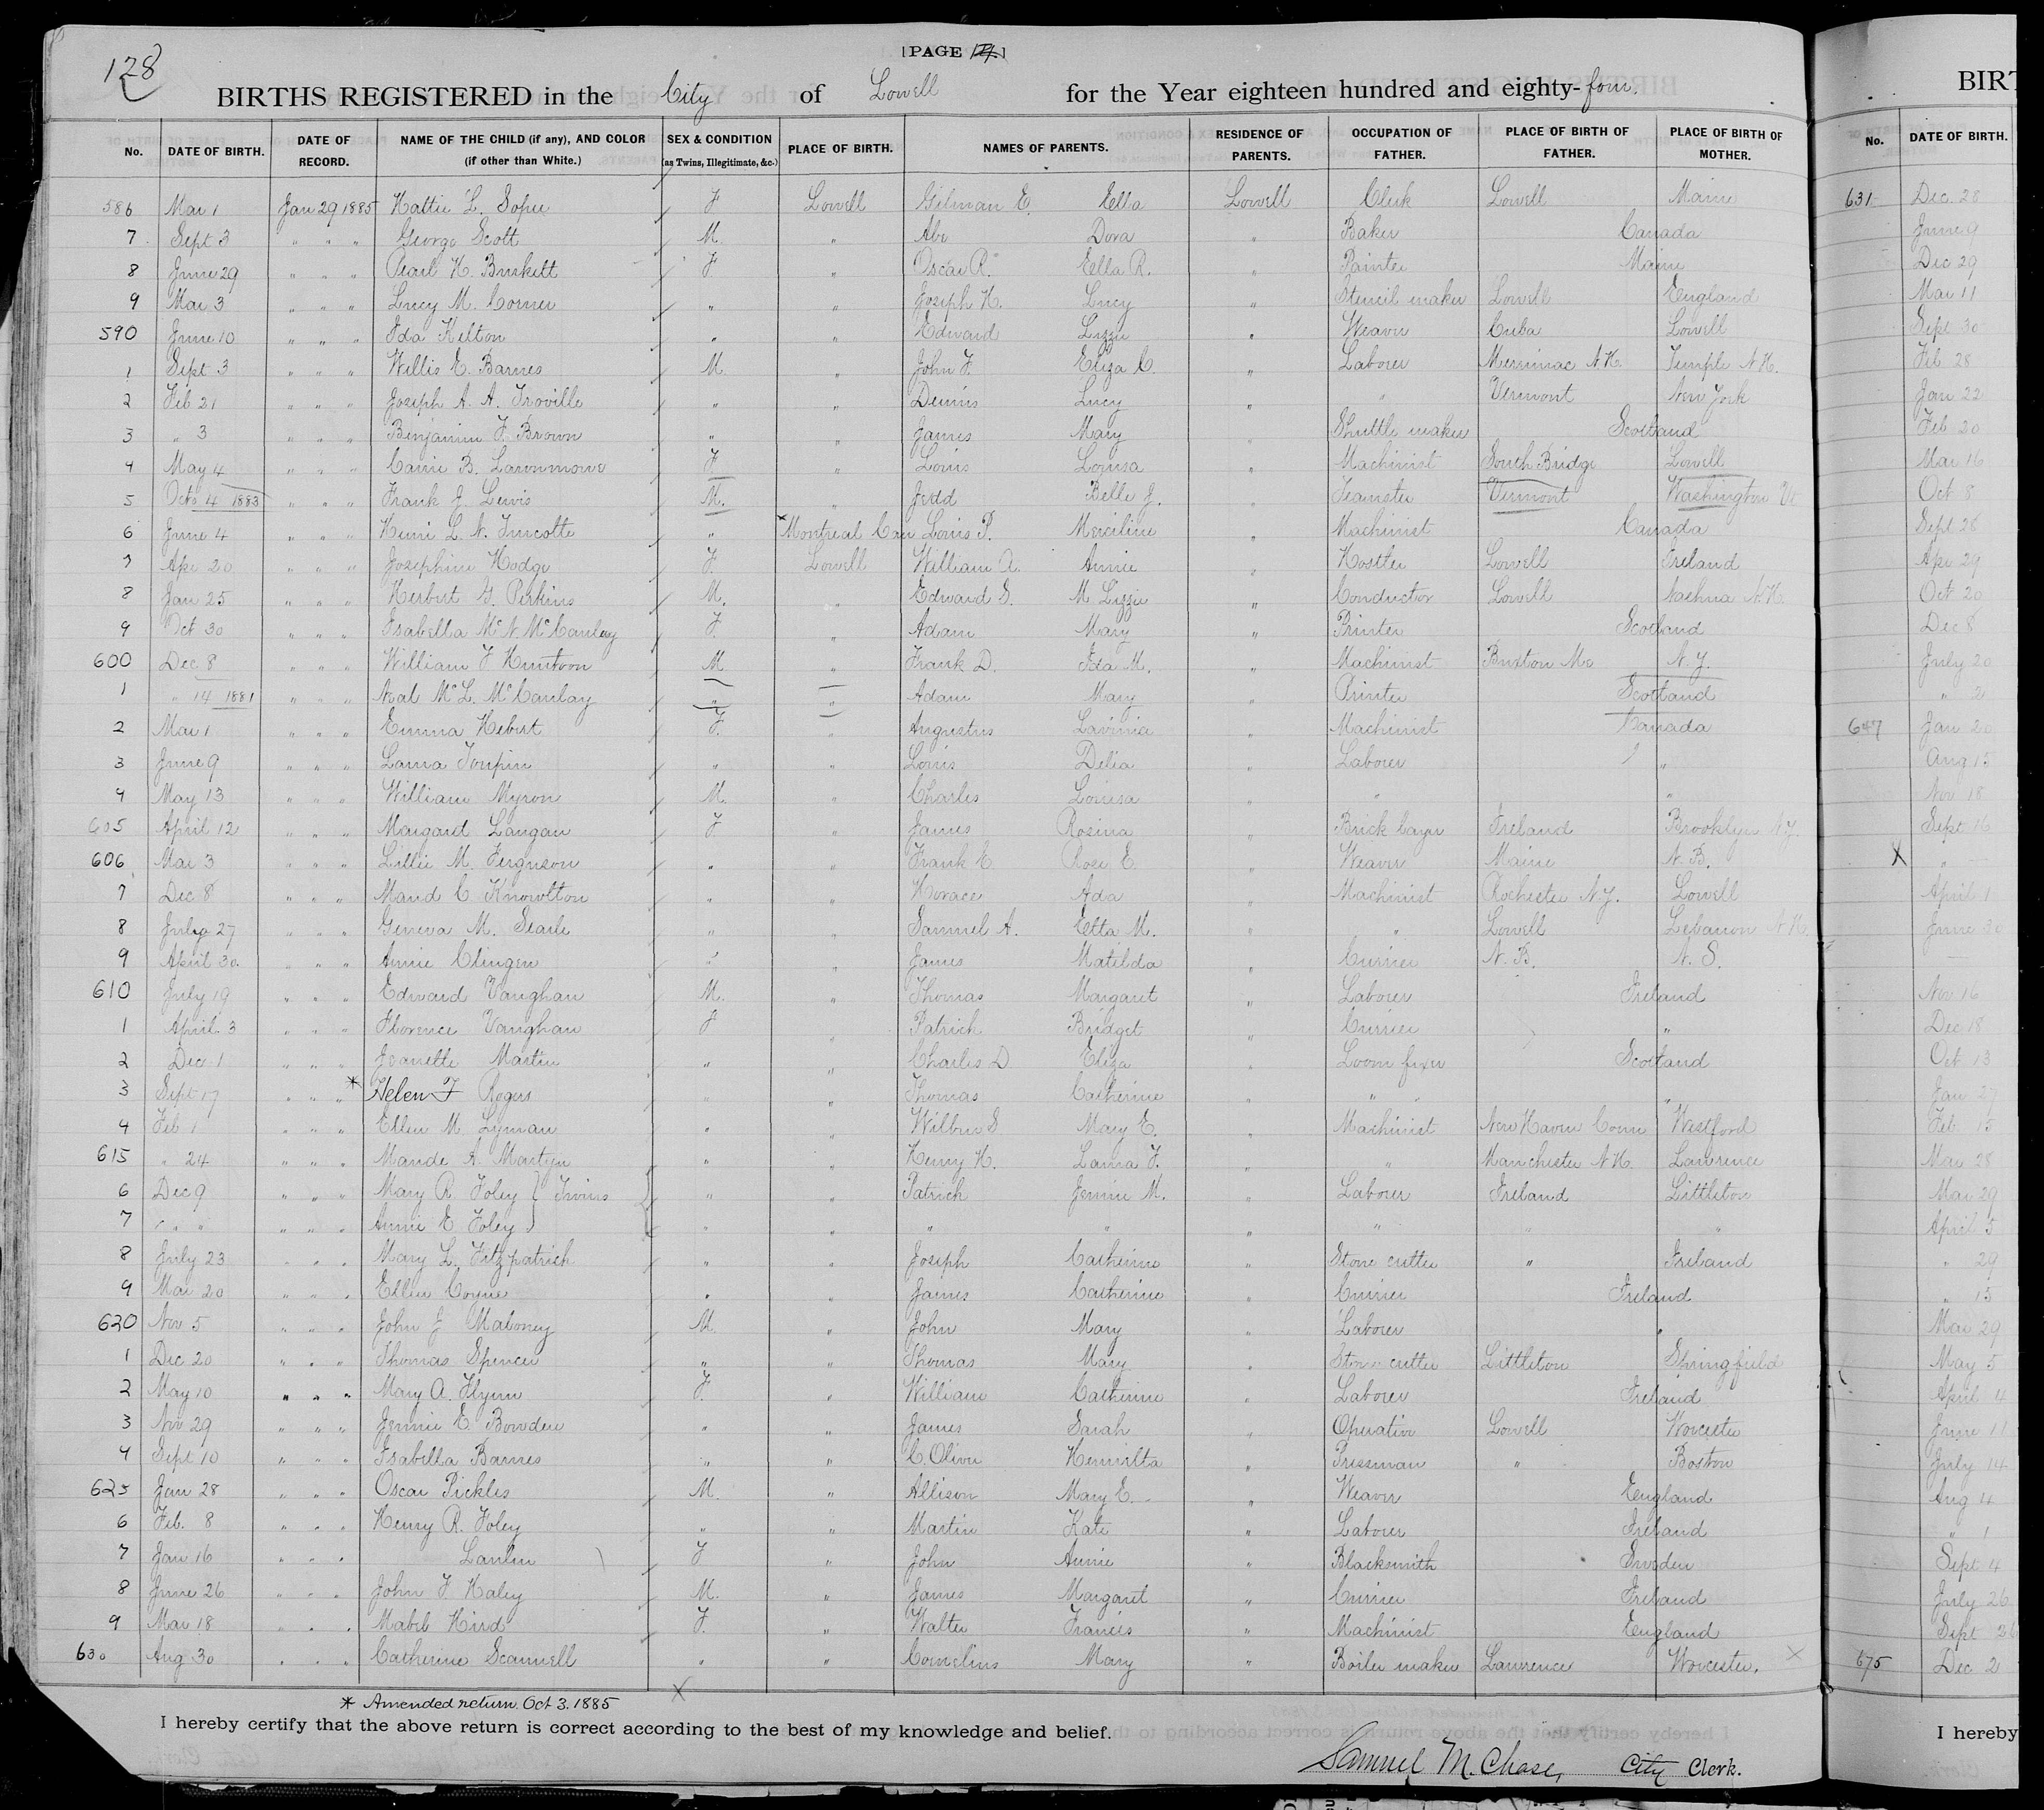 128
[PAGE 14.]
BIRTHS REGISTERED in the City of Lowell for the Year eighteen hundred and eighty-four.
No. DATE OF BIRTH. DATE OF RECORD. NAME OF THE CHILD (if any), AND COLOR (if other than White.) SEX & CONDITION (as Twins, Illegitimate, &c.) PLACE OF BIRTH. NAMES OF PARENTS. RESIDENCE OF PARENTS. OCCUPATION OF FATHER. PLACE OF BIRTH OF FATHER. PLACE OF BIRTH OF MOTHER.
586 Mar 1 Jan 29 1885 Hattie L. Soper F Lowell Gilman E. Ella Lowell Clerk Lowell Maine
7 Sept 3 " " " George Scott M. " Abe Dora " Baker Canada
8 June 29 " " " Pearl H. Burkett F " Oscar R. Ella R. " Painter Maine
9 Mar 3 " " " Lucy M. Corner " " Joseph H. Lucy " Stencil maker Lowell England
590 June 10 " " " Ida Kelton " " Edward Lizzie " Weaver Cuba Lowell
1 Sept 3 " " " Willis E. Barnes M. " John F. Eliza C. " Laborer Merrimac N.H. Temple N.H.
2 Feb 21 " " " Joseph A. A. Troville " " Dennis Lucy " " Vermont New York
3 " 3 " " " Benjamin F. Brown " " James Mary " Shuttle maker Scotland
4 May 4 " " " Carrie B. F " Louis Louisa " Machinist South Bridge Lowell
5 Oct 4 1883 " " " Frank J. Lewis M. " Jedd Belle J. " Teamster Vermont Washington Vt
6 June 4 " " " Henri L. N. Turcotte " * Montreal Can Louis P. Merciline " Machinist Canada
7 Apr 20 " " " Josephine Hodge F. Lowell William A. Annie " Hostler Lowell Ireland
8 Jan 25 " " " Herbert G. Perkins M. " Edward G. M Lizzie " Conductor Lowell Nashua N.H.
9 Oct 30 " " " Isabella McN. McCauley F. " Adam Mary " Printer Scotland
600 Dec 8 " " " William F Huntoon M " Frank D. Ida M. " Machinist Buxton Me N.Y.
1 " 14 1881 " " " Neal McL. McCauley " " Adam Mary " Printer Scotland
2 Mar 1 " " " Emma Hebert F. " Augustus Lavinia " Machinist Canada
3 June 9 " " " Laura Toupin " " Louis Delia " Laborer "
4 May 13 " " " William Myron M. " Charles Louisa " " "
605 April 12 " " " Margaret Langan F " James Rosina " Brick layer Ireland Brooklyn N.Y.
606 Mar 3 " " " Lillie M. Ferguson " " Frank E Rose E. " Weaver Maine N.B.
7 Dec 8 " " " Maud C Knowlton " " Horace Ada " Machinist Rochester N.Y. Lowell
8 July 27 " " " Geneva M. Searle " " Samuel A. Etta M. " " Lowell Lebanon N.H.
9 April 30. " " " Annie Clingen " " James Matilda " Currier N.B. N.S.
610 July 19 " " " Edward Vaughan M. " Thomas Margaret " Laborer Ireland
1 April 3 " " " Florence Vaughan F " Patrick Bridget " Currier "
2 Dec 1 " " " Jeanette Martin " " Charles D Eliza " Loom fixer Scotland
3 Sept 17 " " " * Helen F Rogers " " Thomas Catherine " " " "
4 Feb 1 " " " Ellen M. Lyman " " Wilbur S Mary E. " Machinist New Haven Conn Westford
615 " 24 " " " Maude A. Martyn " " Henry H. Laura F. " " Manchester N.H. Lawrence
6 Dec 9 " " " Mary R Foley } Twins " " Patrick Jennie M. " Laborer Ireland Littleton
7 " " " " " Annie E Foley } " " " " " " " "
8 July 23 " " " Mary L. Fitzpatrick " " Joseph Catherine " Stone cutter " Ireland
9 Mar 20 " " " Ellen Coyne " " James Catherine " Currier Ireland
620 Nov 5 " " " John J Mahoney M. " John Mary " Laborer "
1 Dec 20 " " " Thomas Spencer " " Thomas Mary " Stone cutter Littleton Springfield
2 May 10 " " " Mary A. Flynn F. " William Catherine " Laborer Ireland
3 Nov 29 " " " Jennie E Bowden " " James Sarah " Operative Lowell Worcester
4 Sept 10 " " " Isabella Barnes " " C. Oliver Henrietta " Pressman " Boston
625 Jan 28 " " " Oscar Pickles M. " Allison Mary E. " Weaver England
6 Feb. 8 " " " Henry R. Foley " " Martin Kate " Laborer Ireland
7 Jan 16 " " " F " John Annie " Blacksmith Sweden
8 June 26 " " " John F Haley M. " James Margaret " Currier Ireland
9 Mar 18 " " " Mabel Hird F. " Walter Francis " Machinist England
630 Aug 30 " " " Catherine Scannell " " Cornelius Mary " Boiler maker Lawrence Worcester.
* Amended return Oct 3. 1885
I hereby certify that the above return is correct according to the best of my knowledge and belief.
Samuel M. Chase, City Clerk.
BIRT
No. DATE OF BIRTH.
631 Dec. 28
June 9
Dec 29
Mar 11
Sept 30
Feb 28
Jan 22
Feb 20
Mar 16
Oct 8
Sept 26
Apr 29
Oct 20
Dec 8
July 20
" 2
647 Jan 20
Aug 15
Nov 18
Sept 16
X "
April 1
June 30
Nov 16
Dec 18
Oct 13
Jan 27
Feb 15
Mar 28
Mar 29
April 5
" 29
" 15
Mar 29
May 5
April 4
June 11
July 14
Aug 4
" 1
Sept 4
July 26
Sept 26
675 Dec 2
I hereby